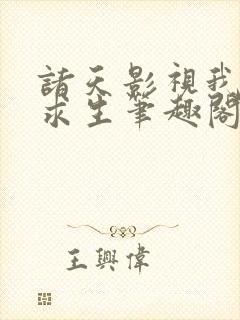 諸天影視我
求生筆趣閣
王興偉